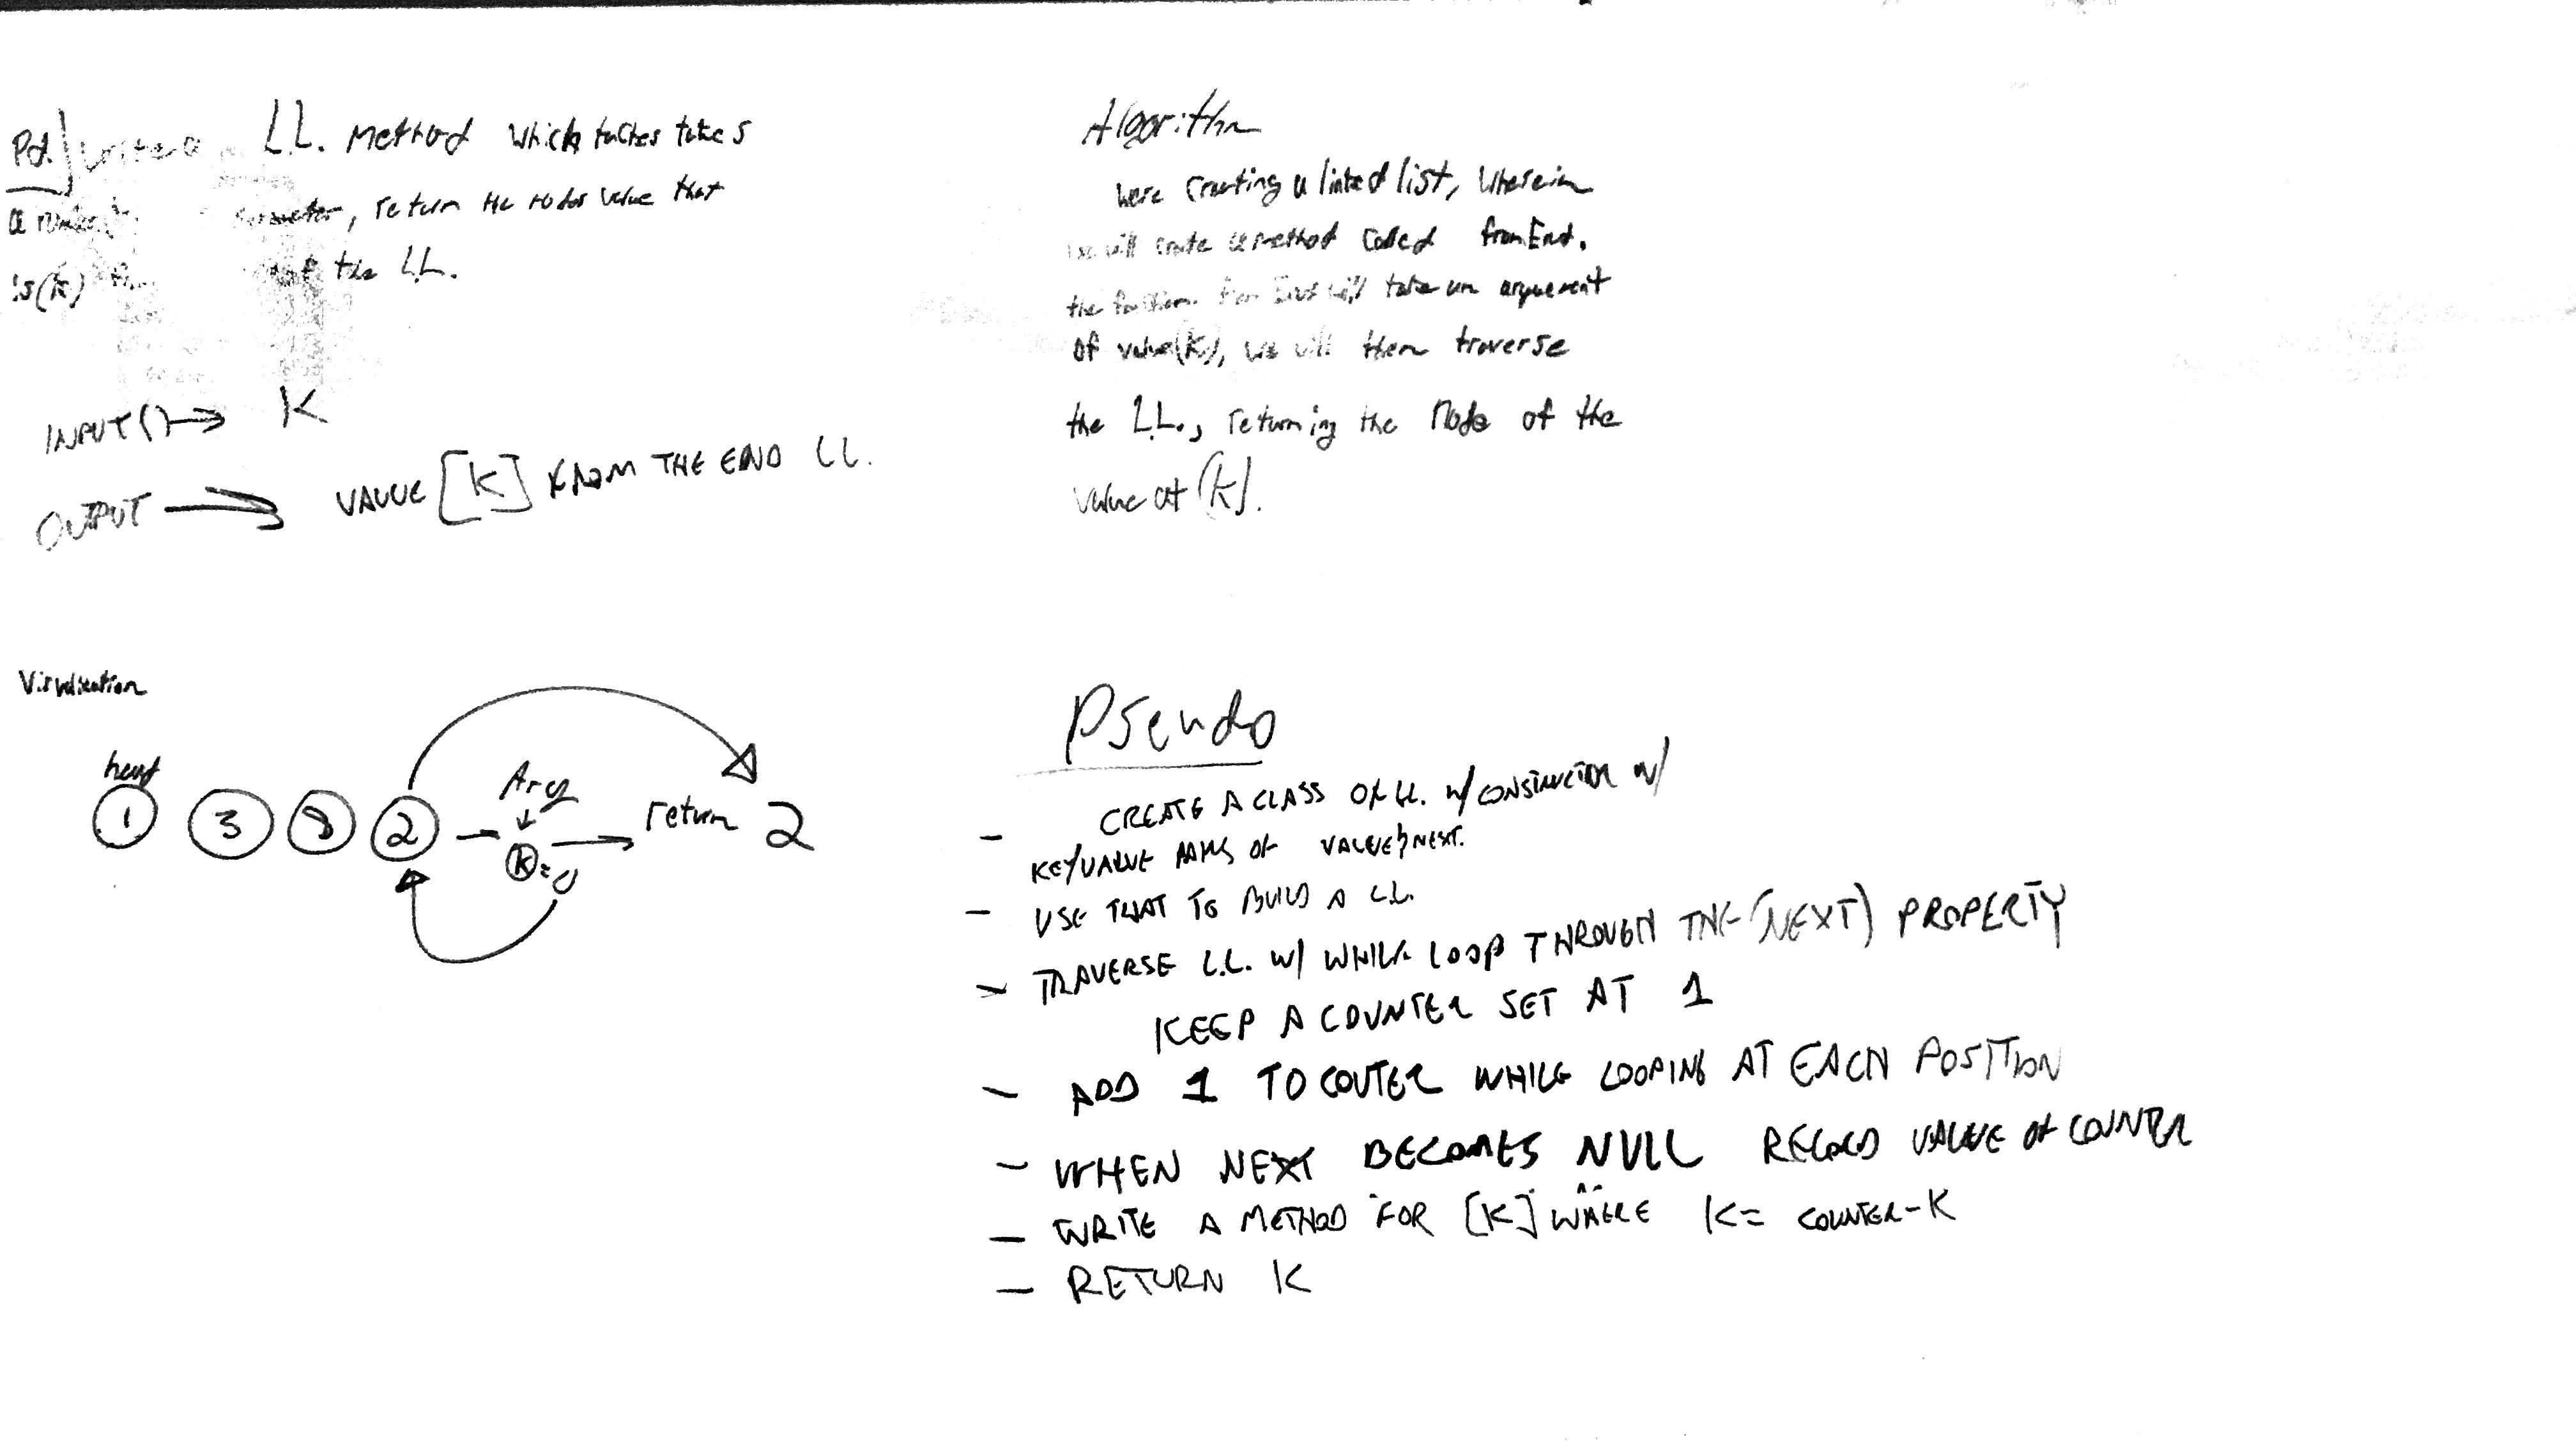 Pd. write a L.L. Method which takes takes
a parameter, return the nodes value that
is (k) the L.L.
INPUT() → K
OUTPUT → VALUE [K] FROM THE END LL.
Visualization
head
1 3 8 2
Arg
K=0
return 2
Algorithm
were creating a linked list, wherein
we will create a method called fromEnd.
the function from End will take an arguement
of value(K), we will then traverse
the L.L., returning the Node of the
value at (K).
Pseudo
- CREATE A CLASS OF LL. W/ CONSTRUCTOR W/
KEY/VALUE PAIRS OF VALUE & NEXT.
- USE THAT TO BUILD A L.L.
- TRAVERSE L.L. W/ WHILE LOOP THROUGH THE (NEXT) PROPERTY
KEEP A COUNTER SET AT 1
- ADD 1 TO COUTER WHILE LOOPING AT EACH POSITION
- WHEN NEXT BECOMES NULL RECORD VALUE OF COUNTER
- WRITE A METHOD FOR [K] WHERE K = COUNTER-K
- RETURN K